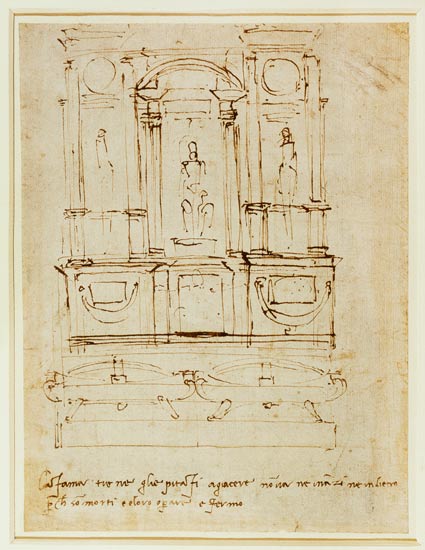 La fama tiene gli epitafi a giacere nō va ne ināzi ne indietro
p̱ch sō morti e eloro op̱are e fermo